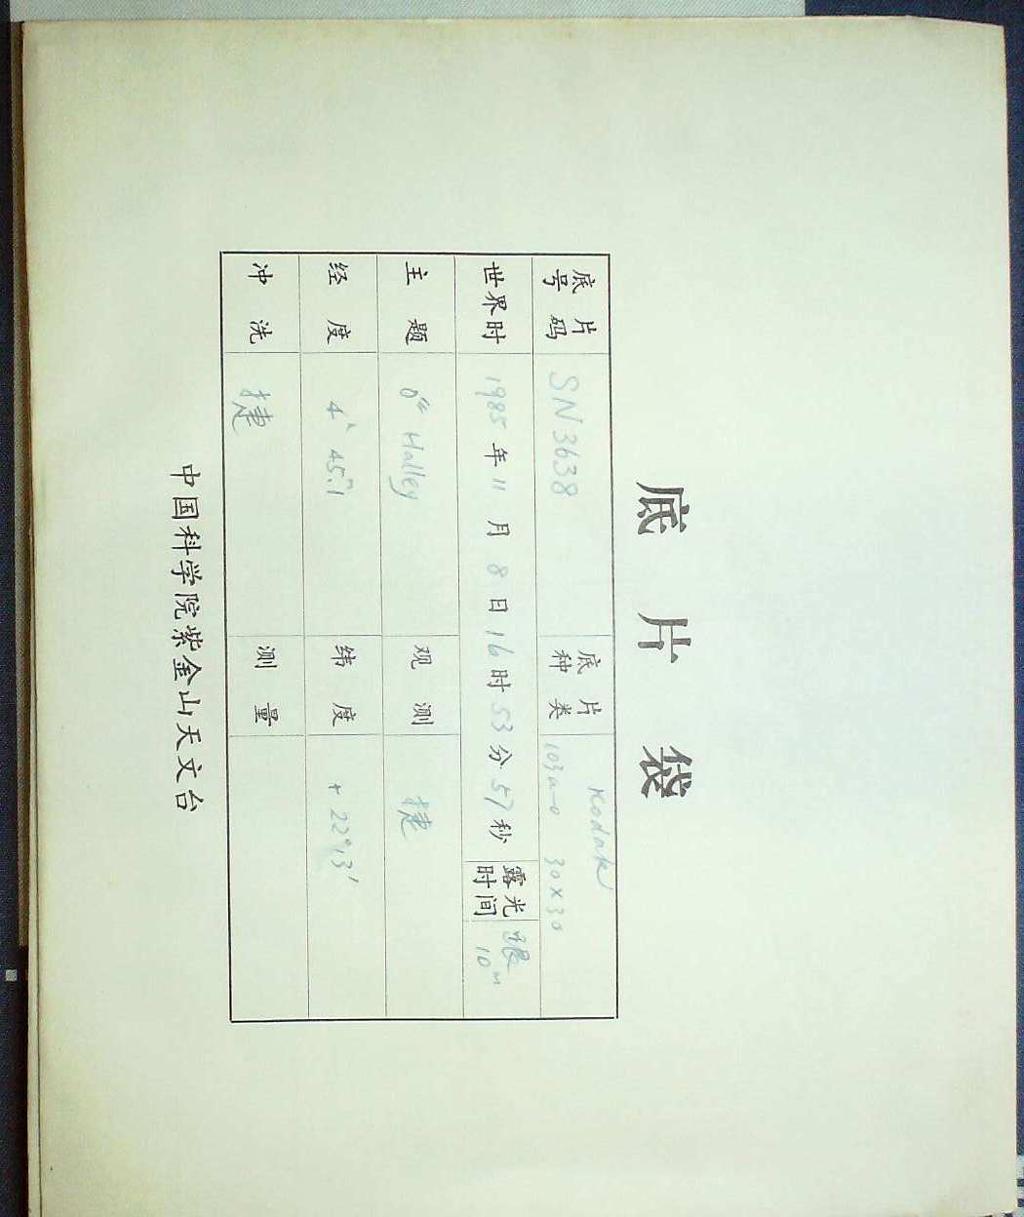 底片袋
底片号码 SN3638 底片种类 Kodak 103a-0 30×30
世界时 1985年11月8日16时53分57秒 露光时间 跟 10m
主题 Halley 观测 捷
经度 4h 45m.1 纬度 +22°13′
冲洗 捷 测量
中国科学院紫金山天文台